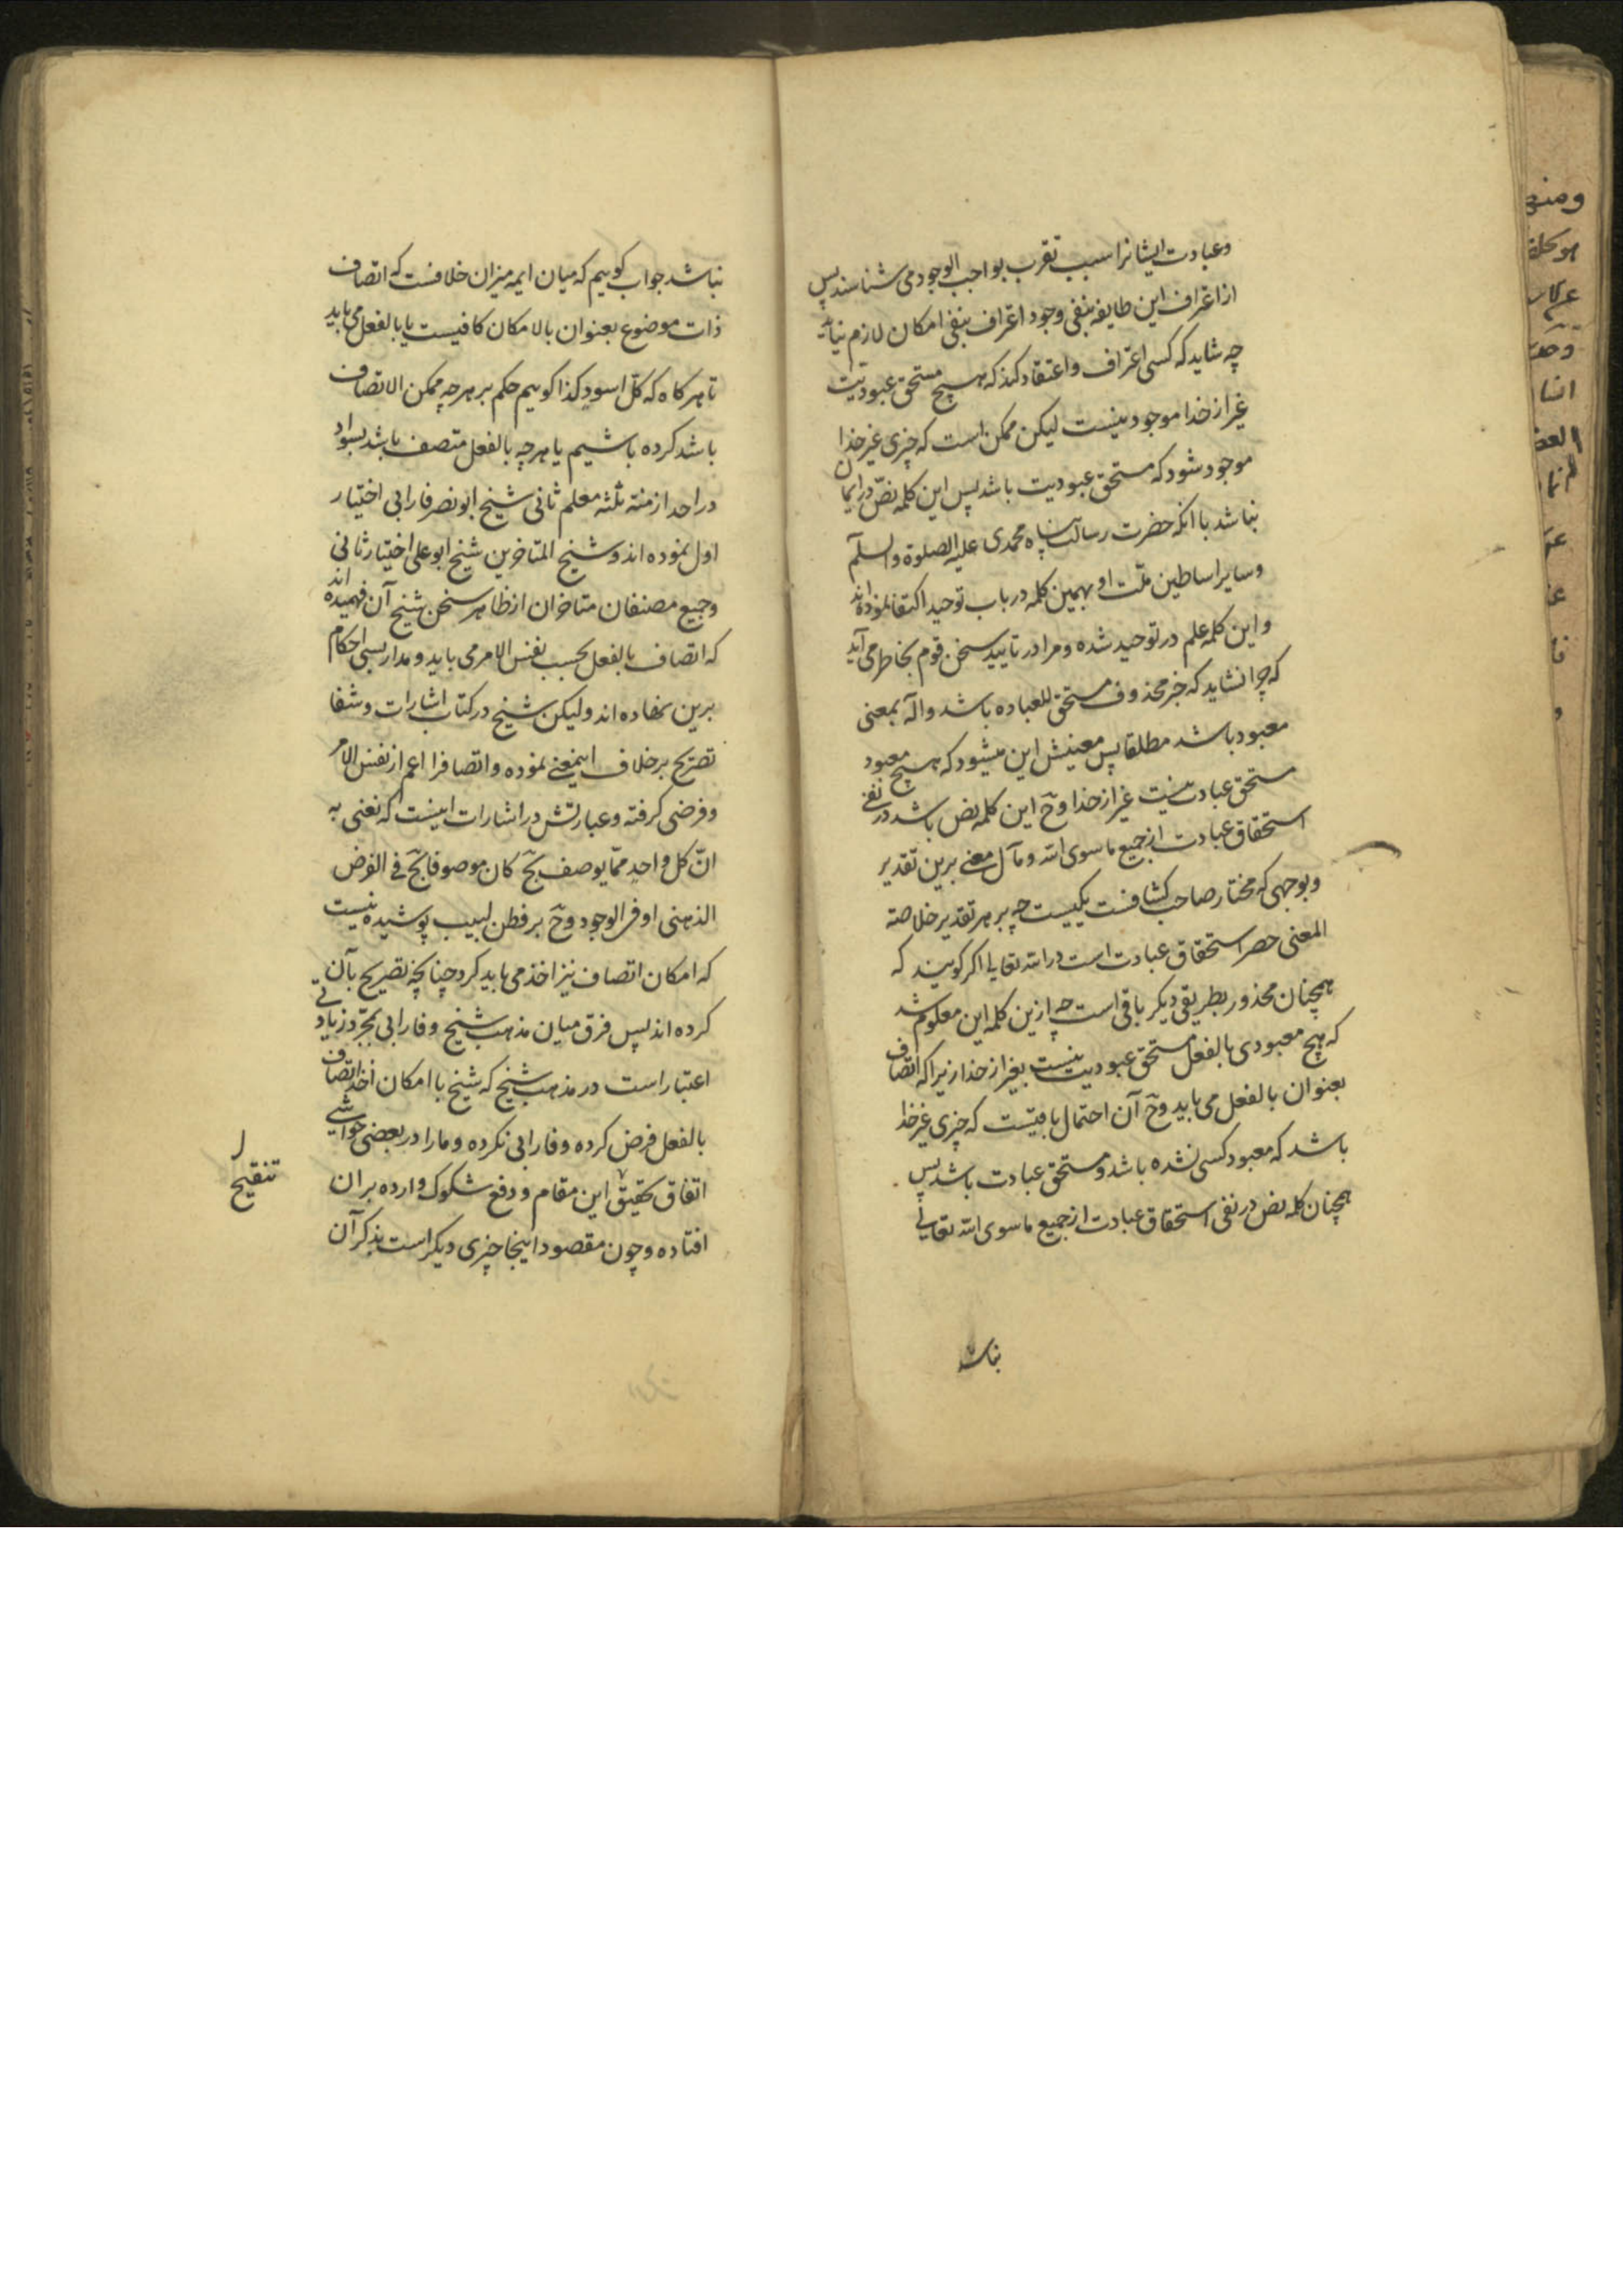 وعبادت ایشانرا سبب تقرب بواجب الوجود می شناسند پس
از اعتراف این طایفه بنفی وجود اعتراف بنفی امکان لازم نیاید
چه شاید که کسی اعتراف و اعتقاد کند که هیچ مستحق عبودیت
غیر از خدا موجود نیست لیکن ممکن است که چیزی غیر خدا
موجود شود که مستحق عبودیت باشد پس این کلمه نصّ در ایمان
نباشد با انکه حضرت رسالت پناه محمدی علیه الصلوة والسلم
وسایر اساطین ملّت او بهمین کلمه در باب توحید اکتفا نموده اند
واین کلمه علم در توحید شده ومرا در تایید سخن قوم بخاطر می آید
که چرا نشاید که خبر محذوف مستحق للعباده باشد و اله بمعنی
معبود باشد مطلقا پس معینش این میشود که هیچ معبود
مستحق عبادت نیست غیر از خدا وحّ این کلمه نص باشد در نفی
استحقاق عبادت از جمیع ما سوی الله ومآل معنی برین تقدیر
وبوجهی که مختار صاحب کشافست یکیست چه بر هر تقدیر خلاصة
المعنی حصر استحقاق عبادت است در الله تعالی اکر کویند که
همچنان محذور بطریقی دیکر باقی است چه ازین کلمه این معلوم شد
که هیچ معبودی بالفعل مستحق عبودیت نیست بغیر از خدا زیرا که اتصاف
بعنوان بالفعل می باید وحّ آن احتمال باقیست که چیزی غیر خدا
باشد که معبود کسی نشده باشد ومستحق عبادت باشد پس
همچنان کلمه نص در نفی استحقاق عبادت از جمیع ما سوی الله تعالی
نباشد
نباشد جواب کوییم که میان ایمه میزان خلافست که اتصاف
ذات موضوع بعنوان بالامکان کافیست یا بالفعل می باید
تا هر کاه که کلّ اسود کذا کوییم حکم بر هر چه ممکن الاتصاف
باشد کرده باشیم یا هر چه بالفعل متصف باشد بسواد
در احد ازمنه ثلثه معلم ثانی شیخ ابو نصر فارابی اختیار
اول نموده اند وشیخ المتاخرین شیخ ابو علی اختیار ثانی
وجمیع مصنفان متاخران از ظاهر سخن شیخ آن فهمیده اند
که اتصاف بالفعل بحسب نفس الامر می باید ومدار بسی احکام
برین نهاده اند ولیکن شیخ در کتاب اشارات وشفا
تصریح بر خلاف اینمعنی نموده واتصافرا اعم از نفس الامر
وفرضی کرفته وعبارتش در اشارات اینست که نعنی به
انّ کل واحدٍ ممّا یوصف بجّ کان موصوفا بجّ فی الفرض
الذهنی او فی الوجود وحّ بر فطن لبیب پوشیده نیست
که امکان اتصاف نیز اخذ می باید کرد چنانچه تصریح بآن
کرده اند پس فرق میان مذهب شیخ وفارابی بمجرّد زیادتی
اعتبار است در مذهب شیخ که شیخ با امکان اخذ اتصاف
بالفعل فرض کرده وفارابی نکرده ومارا در بعضی حواشی
اتفاق تحقیق این مقام ودفع شکوک وارده بران
افتاده وچون مقصود اینجا چیزی دیکر است بذکر آن
تنقیح